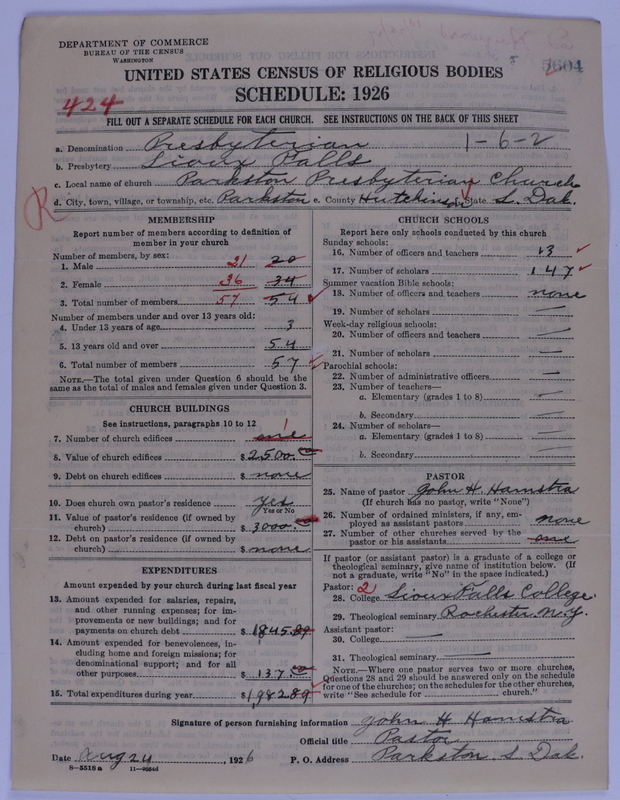 DEPARTMENT OF COMMERCE
BUREAU OF THE CENSUS
WASHINGTON
5604
UNITED STATES CENSUS OF RELIGIOUS BODIES
SCHEDULE: 1926
424
FILL OUT A SEPARATE SCHEDULE FOR EACH CHURCH. SEE INSTRUCTIONS ON THE BACK OF THIS SHEET
a. Denomination Presbyterian 1-6-2
b. Presbytery Sioux Falls
c. Local name of church Parkston Presbyterian Church
d. City, town, village, or township, etc. Parkston e. County Hutchinson State S. Dak.
R
MEMBERSHIP
Report number of members according to definition of
member in your church
Number of members, by sex:
1. Male 21 20
2. Female 36 34
3. Total number of members 57 54
Number of members under and over 13 years old:
4. Under 13 years of age 3
5. 13 years old and over 54
6. Total number of members 57
NOTE.—The total given under Question 6 should be
same as the total of males and females given under Question 3.
CHURCH BUILDINGS
See instructions, paragraphs 10 to 12
7. Number of church edifices one 1
8. Value of church edifices $ 2500.00
9. Debt on church edifices $ none
10. Does church own pastor's residence Yes
Yes or No
11. Value of pastor's residence (if owned by
church) $ 3000.00
12. Debt on pastor's residence (if owned by
church) $ none
EXPENDITURES
Amount expended by your church during last fiscal year
13. Amount expended for salaries, repairs,
and other running expenses; for im-
provements or new buildings; and for
payments on church debt $ 1845.89
14. Amount expended for benevolences, in-
cluding home and foreign missions; for
denominational support; and for all
other purposes $ 137.00
15. Total expenditures during year $ 1982 89
CHURCH SCHOOLS
Report here only schools conducted by this church
Sunday schools:
16. Number of officers and teachers 13
17. Number of scholars 147
Summer vacation Bible schools:
18. Number of officers and teachers none
19. Number of scholars —
Week-day religious schools:
20. Number of officers and teachers —
21. Number of scholars —
Parochial schools:
22. Number of administrative officers —
23. Number of teachers—
a. Elementary (grades 1 to 8) —
b. Secondary —
24. Number of scholars—
a. Elementary (grades 1 to 8) —
b. Secondary —
PASTOR
25. Name of pastor John H. Hamstra
(If church has no pastor, write "None")
26. Number of ordained ministers, if any, em-
ployed as assistant pastors none
27. Number of other churches served by the
pastor or his assistants one
If pastor (or assistant pastor) is a graduate of a college or
theological seminary, give name of institution below. (If
not a graduate, write "No" in the space indicated.)
Pastor: 2
28. College Sioux Falls College.
29. Theological seminary Rochester N.Y.
Assistant pastor:
30. College —
31. Theological seminary —
NOTE.—Where one pastor serves two or more churches,
Questions 28 and 29 should be answered only on the schedule
for one of the churches; on the schedules for the other churches,
write "See schedule for church."
Signature of person furnishing information John H Hamstra
Official title Pastor
Date Aug 24, 1926 P. O. Address Parkston S. Dak.
8—5518 a